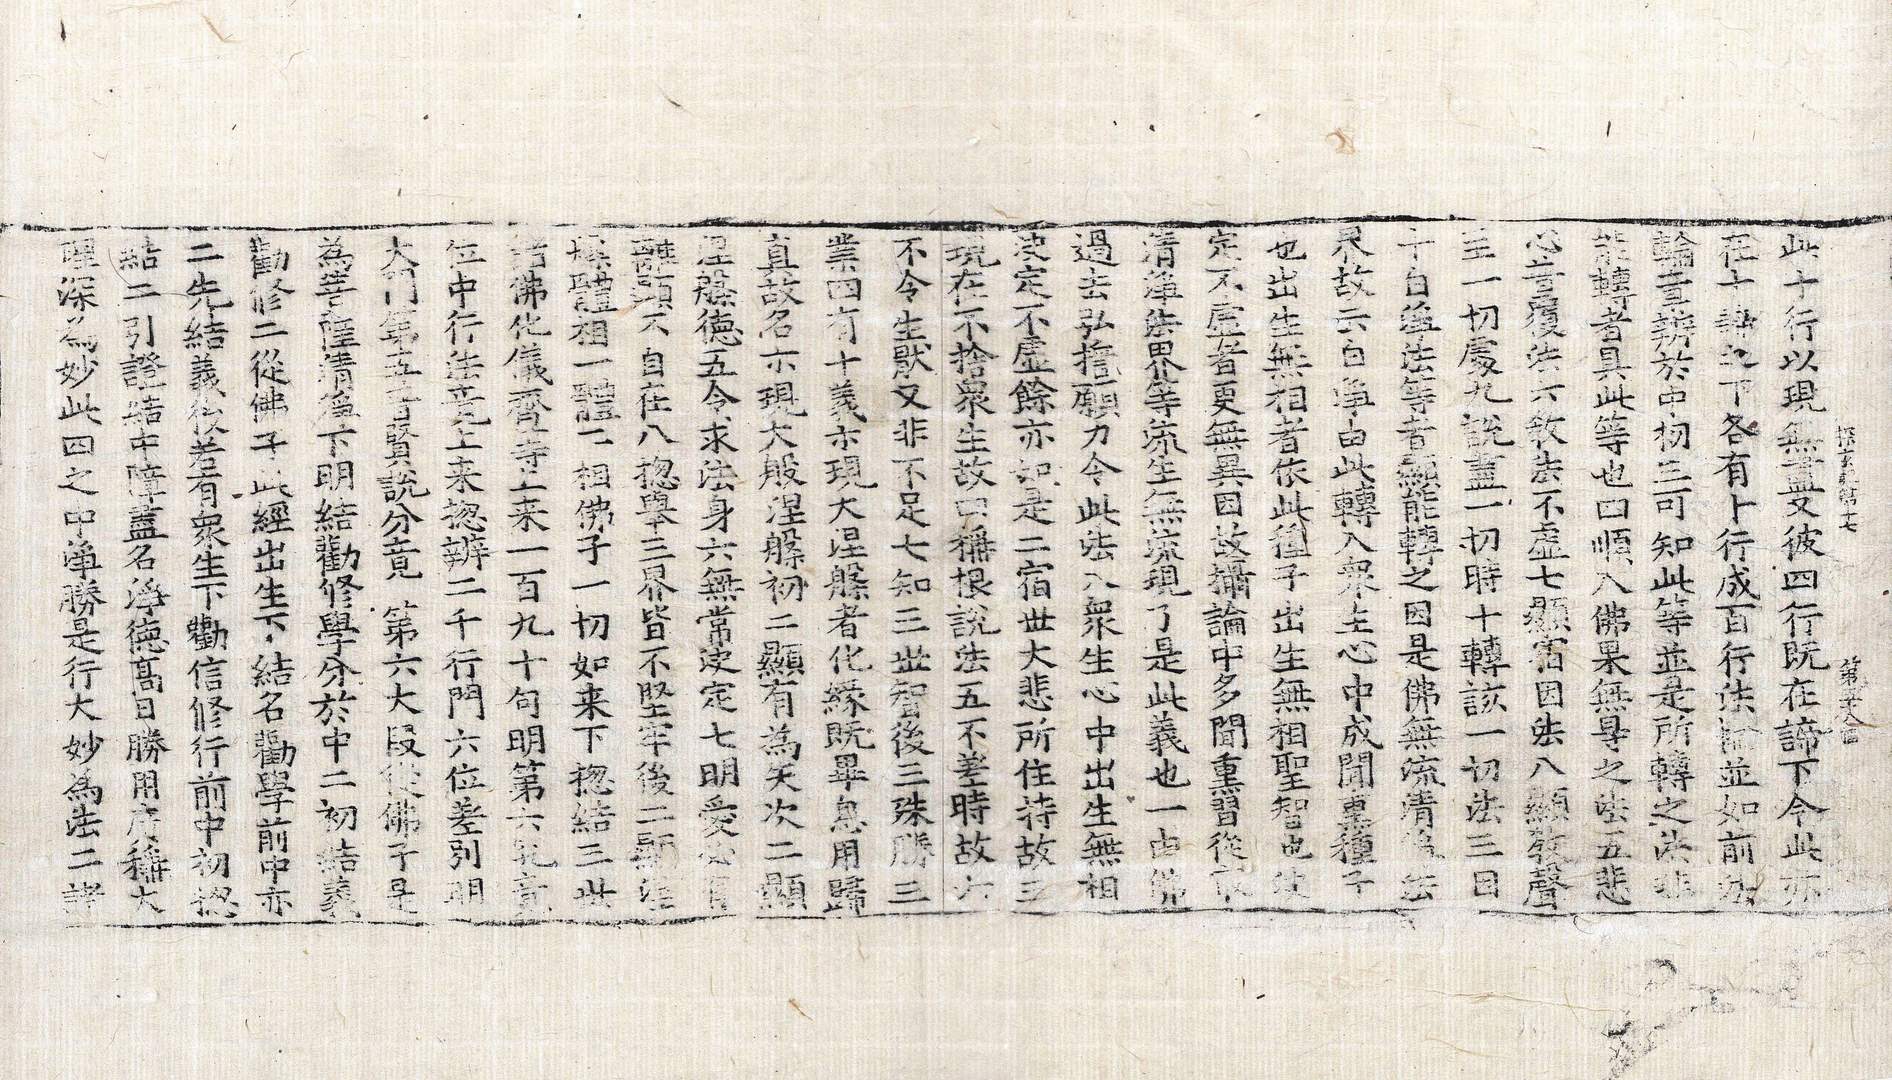 探玄記第十七　第五十八幅
此十行以現無盡又彼四行既在諦下令此亦
在十諦之下各有十行成百行法輪並如前辨
輪言辨於中初三可知此等並是所轉之法非
能轉者具此等也四順入佛果無㝵之法五悲
心普覆法六教法不虛七顯宿因法八顯教聲
至一切處九說盡一切時十轉該一切法三因
十白淨法等者顯能轉之因是佛無流清淨法
界故云白淨由此轉入眾生心中成聞熏種子
也出生無相者依此種子出生無相聖智也決
定不虛者更無異因故攝論中多聞熏習從最
清淨法界等流生無流現了是此義也一由佛
過去弘擔願力令此法入眾生心中出生無相
決定不虛餘亦如是二宿世大悲所住持故三
現在不捨眾生故四稱根說法五不差時故六
不令生猒又非不足七知三世智後三殊勝三
業四有十義亦現大涅槃者化緣既畢息用歸
真故名亦現大般涅槃初二顯有為失次二顯
涅槃德五令求法身六無常決定七明愛必有
離顯不自在八揔舉三界皆不堅牢後二顯涅
槃體相一體二相佛子一切如来下揔結三世
諸佛化儀齊等上来一百九十句明第六究竟
位中行法竟上来揔辨二千行門六位差別明
大門第五普賢說分竟　第六大段從佛子是
為菩薩清淨下明結勸修學分於中二初結義
勸修二從佛子此經出生下結名勸學前中亦
二先結義後若有眾生下勸信修行前中初揔
結二引證結中障盡名淨德高曰勝用廣稱大
理深為妙此四之中淨勝是行大妙為法二諸